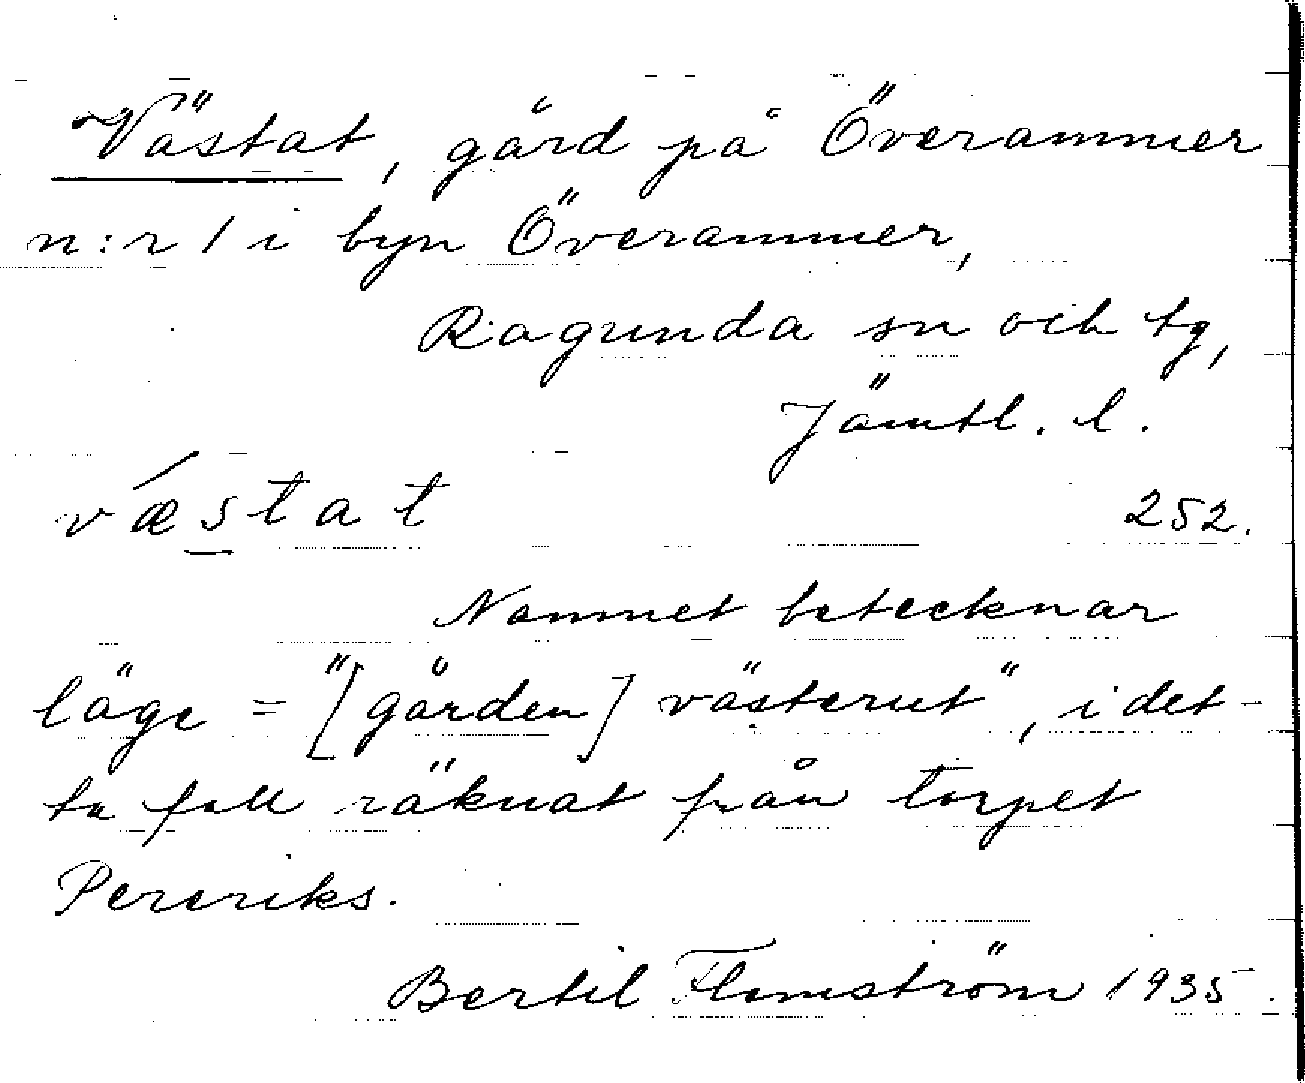 Västat, gård på Överammer
n:r 1 i byn Överammer,
Ragunda sn och tg,
Jämtl. l.
vǽstat 252.
Namnet betecknar
läge = "[gården] västerut", i det-
ta fall räknat från torpet
Pereriks.
Bertil Flemström 1935.